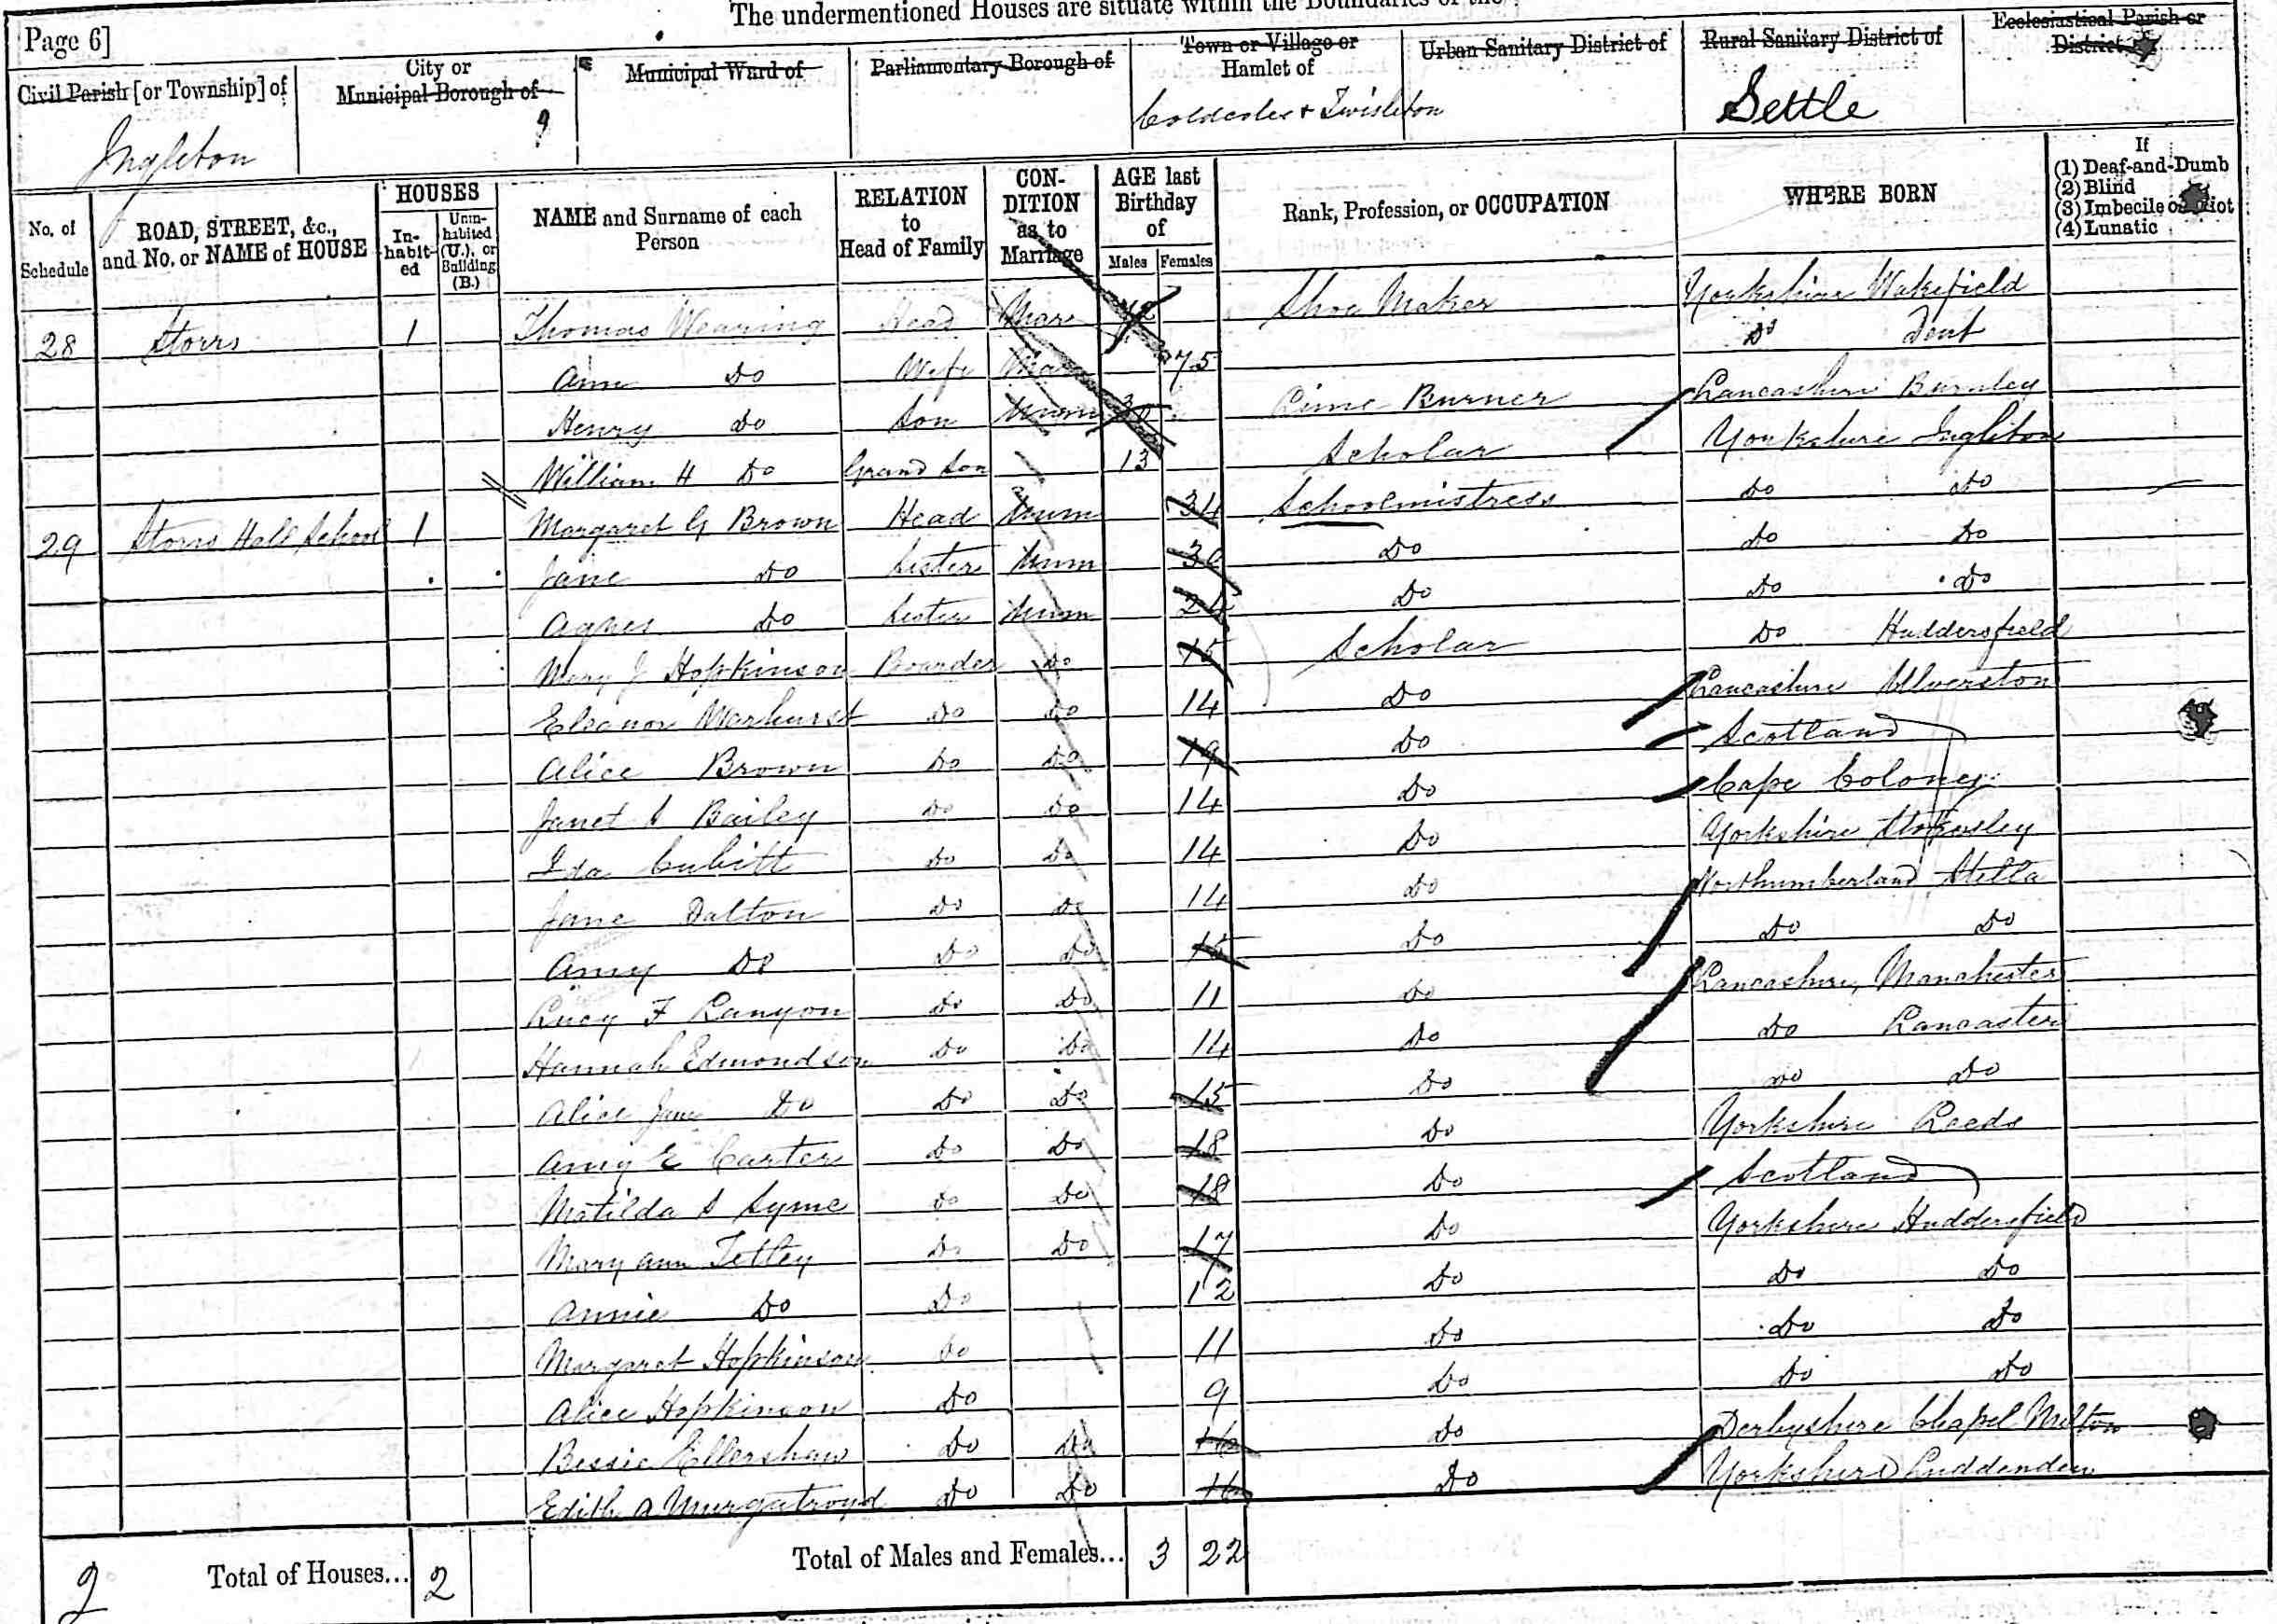 The undermentioned Houses are situate within the Boundaries of the
Page 6]
Civil Parish [or Township] of
City or Municipal Borough of
Municipal Ward of
Parliamentary Borough of
Town or Village or Hamlet of
Urban Sanitary District of
Rural Sanitary District of
Ecclesiastical Parish or District
Ingleton
Coldcotes + Twisleton
Settle
No. of Schedule
ROAD, STREET, &c., and No. or NAME of HOUSE
HOUSES
In-habit-ed
Unin-habited (U.), or Building (B.)
NAME and Surname of each Person
RELATION to Head of Family
CON-DITION as to Marriage
AGE last Birthday of
Males Females
Rank, Profession, or OCCUPATION
WHERE BORN
If
(1) Deaf-and-Dumb
(2) Blind
(3) Imbecile or Idiot
(4) Lunatic
28 Storrs 1 Thomas Wearing Head Mar 72 Shoe Maker Yorkshire Wakefield
Ann Do Wife Mar 75 Do Dent
Henry Do Son Unm 30 Lime Burner Lancashire Burnley
William H Do Grand Son 13 Scholar Yorkshire Ingleton
29 Storrs Hall School 1 Margaret G Brown Head Unm 34 Schoolmistress Do Do
Jane Do Sister Unm Do Do Do
Agnes Do Sister Unm 24 Do Do Do
Mary J Hopkinson Boarder Do 15 Scholar Do Huddersfield
Eleanor Warhurst Do Do 14 Do Lancashire Ulverston
Alice Brown Do Do 19 Do Scotland
Janet S Bailey Do Do 14 Do Cape Colony
Ida Cubitt Do Do 14 Do Yorkshire Stokesley
Jane Dalton Do Do 14 Do Northumberland Stella
Amy Do Do Do 15 Do Do Do
Lucy F Lanyon Do Do 11 Do Lancashire, Manchester
Hannah Edmondson Do Do 14 Do Do Lancaster
Alice Jane Do Do Do 15 Do Do Do
Amy E Carter Do Do 18 Do Yorkshire Leeds
Matilda S Syme Do Do 18 Do Scotland
Mary Ann Tetley Do Do 17 Do Yorkshire Huddersfield
Annie Do Do 12 Do Do Do
Margaret Hopkinson Do 11 Do Do Do
Alice Hopkinson Do 9 Do Do Do
Bessie Ellershaw Do Do 16 Do Derbyshire Chapel Milton
Edith A Murgatroyd Do Do 16 Do Yorkshire Luddenden
2 Total of Houses... 2 Total of Males and Females... 3 22